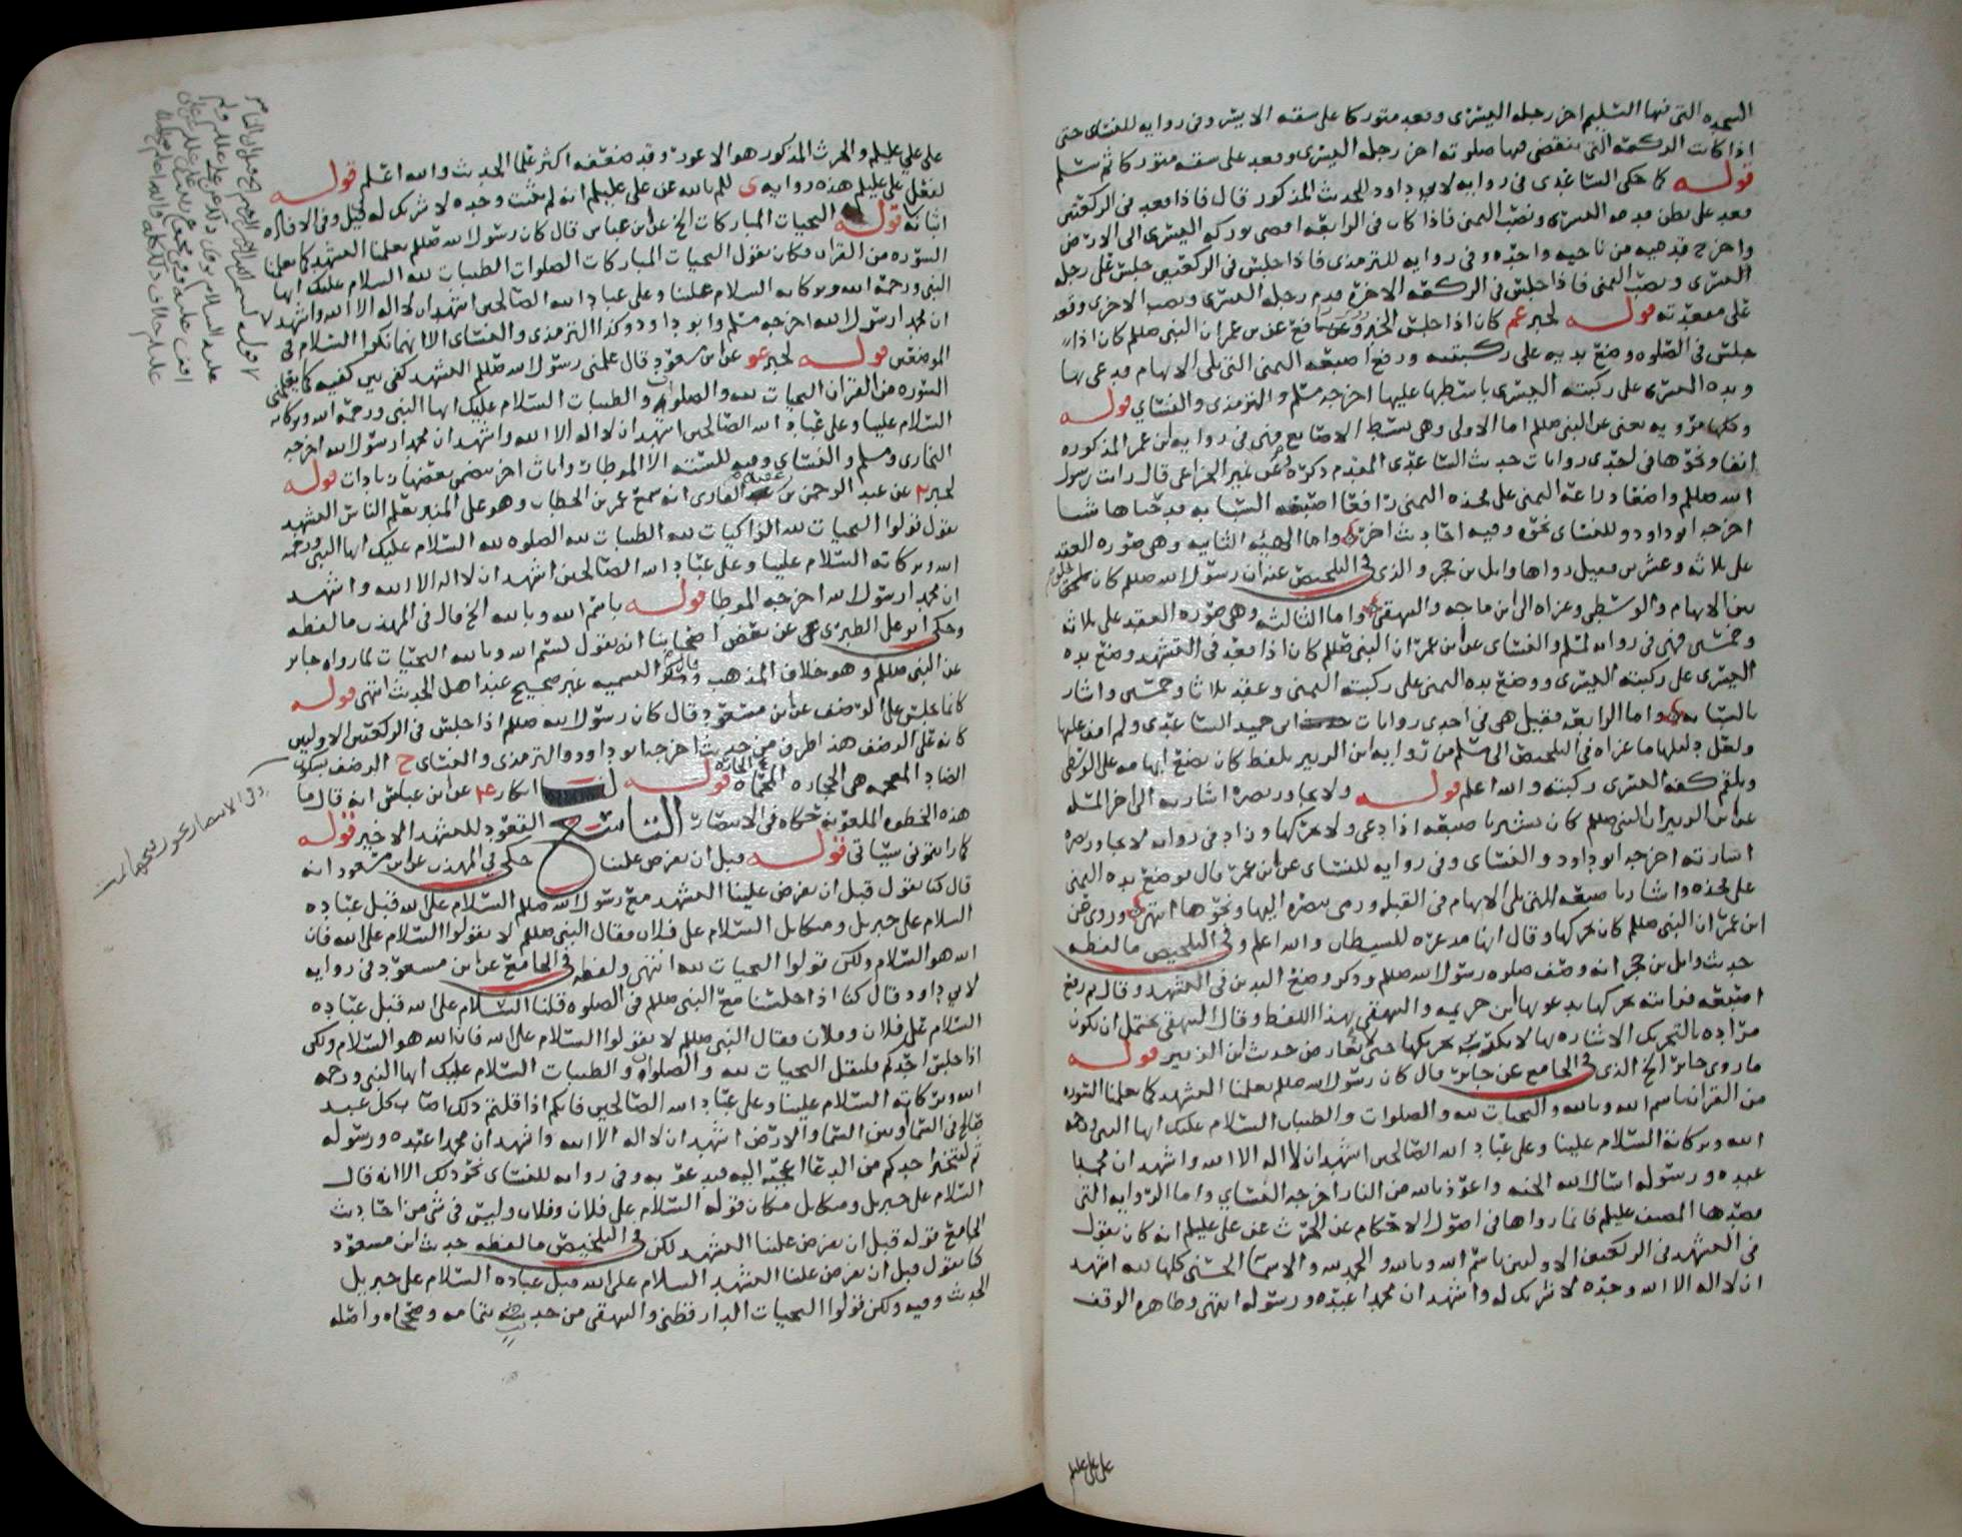 السجده التي فيها التسليم اخر رجله اليسرى وقعد متوركا على شقه الايسر وفي روايه للنسائي حتى
اذا كانت الركعة التي تنقضي فيها صلوته اخر رجله اليسرى وقعد على شقه متوركا ثم سلم
قوله كما حكى الساعدي في روايه لابي داود للحديث المذكور قال فاذا قعد في الركعتين
قعد على بطن قدمه اليسرى ونصب اليمنى فاذا كان في الرابعة افضى بوركه اليسرى الى الارض
واخرج قدميه من ناحيه واحده وفي روايه للترمذي فاذا جلس في الركعتين جلس على رجله
اليسرى ونصب اليمنى فاذا جلس في الركعه الاخرة قدم رجله اليسرى ونصب الاخرى وقعد
على مقعدته قوله لخبر عم كان اذا جلس الخبر وعن نافع عن بن عمر ان النبي صللم كان اذا
جلس في الصلوه وضع يديه على ركبتيه ورفع اصبعه اليمنى التي تلي الابهام فدعى بها
ويده اليسرى على ركبته اليسرى باسطها عليها اخرجه مسلم والترمذي والنسائي قوله
وكلها مرويه يعني عن النبي صللم اما الاولى وهي بسط الاصابع فهي في روايه ابن عمر المذكوره
انفا ونحوها في احدى روايات حديث الساعدي المقدم ذكره وعن نمير الخزاعي قال رايت رسول
الله صللم واضعا ذراعه اليمنى على فخذه اليمنى رافعا اصبعه السبابه قد حناها شيا
اخرجه ابو داود وللنسائي نحوه وفيه احاديث اخر واما الهيئه الثانيه وهي صوره العقد
على ثلاثه وعشرين فقيل رواها وايل بن حجر والذي في التلخيص عنه ان رسول الله صللم كان يحلق
بين الابهام والوسطى وعزاه الى ابن ماجه والبيهقي واما الثالثه وهي صوره العقد على ثلاثه
وخمسين فهي في روايه لمسلم والنسائي عن ابن عمر ان النبي صللم كان اذا قعد في التشهد وضع يده
اليسرى على ركبته اليسرى ووضع يده اليمنى على ركبته اليمنى وعقد ثلاثا وخمسين واشار
بالسبابه واما الرابعه فقيل هي في احدى روايات ابي حميد الساعدي ولم اقف عليها
ولعل دليلها ما عزاه في التلخيص الى مسلم من روايه ابن الزبير بلفظ كان يضع ابهامه على الوسطى
ويلقم كفه اليسرى ركبته والله اعلم قوله ولا يجاوز بصره اشارته الى اخر المسله
عن ابن الزبير ان النبي صللم كان يشير باصبعه اذا دعى ولا يحركها وزاد في روايه لا يجاوز بصره
اشارته اخرجه ابو داود والنسائي وفي روايه للنسائي عن ابن عمر قال فوضع يده اليمنى
على فخذه واشار باصبعه التي تلي الابهام في القبله ورمى ببصره اليها ونحوها انتهى وروي عن
ابن عمر ان النبي صللم كان يحركها وقال انها مذعره للشيطان والله اعلم وفي التلخيص ما لفظه
حديث وايل بن حجر انه وصف صلوه رسول الله صللم وذكر وضع اليدين في التشهد وقال ثم رفع
اصبعه فرايته يحركها يدعو بها ابن خزيمه والبيهقي بهذا اللفظ وقال البيهقي يحتمل ان يكون
مراده بالتحريك الاشاره بها لا تكرير تحريكها حتى لا يعارض حديث ابن الزبير قوله
ما روى جابر الخ الذي في الجامع عن جابر قال كان رسول الله صللم يعلمنا التشهد كما يعلمنا السوره
من القران باسم الله وبالله والتحيات لله والصلوات والطيبات السلام عليك ايها النبي ورحمة
الله وبركاته السلام علينا وعلى عباد الله الصالحين اشهد ان لا اله الا الله واشهد ان محمدا
عبده ورسوله اسال الله الجنه واعوذ بالله من النار اخرجه النسائي واما الروايه التي
قصدها المصنف عليلم فانما رواها في اصول الاحكام عن الحرث عن علي عليلم انه كان يقول
في التشهد في الركعتين الاوليين باسم الله وبالله والحمد لله والاسما الحسنى كلها لله اشهد
ان لا اله الا الله وحده لا شريك له واشهد ان محمدا عبده ورسوله انتهى وظاهره الوقف
على علي عليلم
على علي عليلم والحرث المذكور هو الاعور وقد ضعفه اكثر علما الحديث والله اعلم قوله
لفعل علي عليلم هذه روايه للم بالله عن علي عليلم انه لم يثبت وحده لا شريك له قيل وفي الافاده
اثباته قوله التحيات المباركات الخ عن ابن عباس قال كان رسول الله صللم يعلمنا التشهد كما يعلمنا
السوره من القران فكان يقول التحيات المباركات الصلوات الطيبات لله السلام عليك ايها
النبي ورحمة الله وبركاته السلام علينا وعلى عباد الله الصالحين اشهد ان لا اله الا الله واشهد
ان محمدا رسول الله اخرجه مسلم وابو داود وكذا الترمذي والنسائي الا انهما نكرا السلام في
الموضعين قوله لخبر عو عن ابن مسعود قال علمني رسول الله صللم التشهد كفي بين كفيه كما يعلمني
السوره من القران التحيات لله والصلوات والطيبات السلام عليك ايها النبي ورحمة الله وبركاته
السلام علينا وعلى عباد الله الصالحين اشهد ان لا اله الا الله واشهد ان محمدا رسول الله اخرجه
البخاري ومسلم والنسائي وفيه للسته الا الموطا روايات اخر يتضمن بعضها زيادات قوله
لخبر عن عبد الرحمن بن عبد القاري انه سمع عمر بن الخطاب وهو على المنبر يعلم الناس التشهد
يقول قولوا التحيات لله الزاكيات لله الطيبات لله الصلوه لله السلام عليك ايها النبي ورحمة
الله وبركاته السلام علينا وعلى عباد الله الصالحين اشهد ان لا اله الا الله واشهد
ان محمدا رسول الله اخرجه الموطا قوله باسم الله وبالله الخ قال في المهذب ما لفظه
وحكى ابو علي الطبري عن بعض اصحابنا انه يقول بسم الله وبالله التحيات لما رواه جابر
عن النبي صللم وهو خلاف المذهب وذكر التسميه غير صحيح عند اهل الحديث انتهى قوله
كانما يجلس على الرضف عن ابن مسعود قال كان رسول الله صللم اذا جلس في الركعتين الاوليين
كانه على الرضف هذا طرف من حديث اخرجه ابو داود والترمذي والنسائي ح الرضف بسكون
الضاد المعجمه هي الحجاره المحماه قوله انكار عن ابن عباس انه قال ما
هذه الخطوه الملعونه حكاه في الانتصار التاسع القعود للتشهد الاخير قوله
كما رايتموني سياتي قوله قبل ان يفرض علينا حكى في المهذب عن ابن مسعود انه
قال كنا نقول قبل ان يفرض علينا التشهد مع رسول الله صللم السلام على الله قبل عباده
السلام على جبريل وميكايل السلام على فلان فقال النبي صللم لا تقولوا السلام على الله فان
الله هو السلام ولكن قولوا التحيات لله انتهى ولفظه في الجامع عن ابن مسعود في روايه
لابي داود قال كنا اذا جلسنا مع النبي صللم في الصلوه قلنا السلام على الله قبل عباده
السلام على فلان وفلان فقال النبي صللم لا تقولوا السلام على الله فان الله هو السلام ولكن
اذا جلس احدكم فليقل التحيات لله والصلوات والطيبات السلام عليك ايها النبي ورحمة
الله وبركاته السلام علينا وعلى عباد الله الصالحين فانكم اذا قلتم ذلك اصاب كل عبد
صالح في السما وبين السما والارض اشهد ان لا اله الا الله واشهد ان محمدا عبده ورسوله
ثم ليتخير احدكم من الدعا اعجبه اليه فيدعو به وفي روايه للنسائي نحو ذلك الا انه قال
السلام على جبريل وميكايل مكان قوله السلام على فلان وفلان وليس في شي من احاديث
الجامع قوله قبل ان يفرض علينا التشهد لكن في التلخيص ما لفظه حديث ابن مسعود
كنا نقول قبل ان يفرض علينا التشهد السلام على الله قبل عباده السلام على جبريل
الحديث وفيه ولكن قولوا التحيات الدارقطني والبيهقي من حديثه بتمامه وصححاه واصله